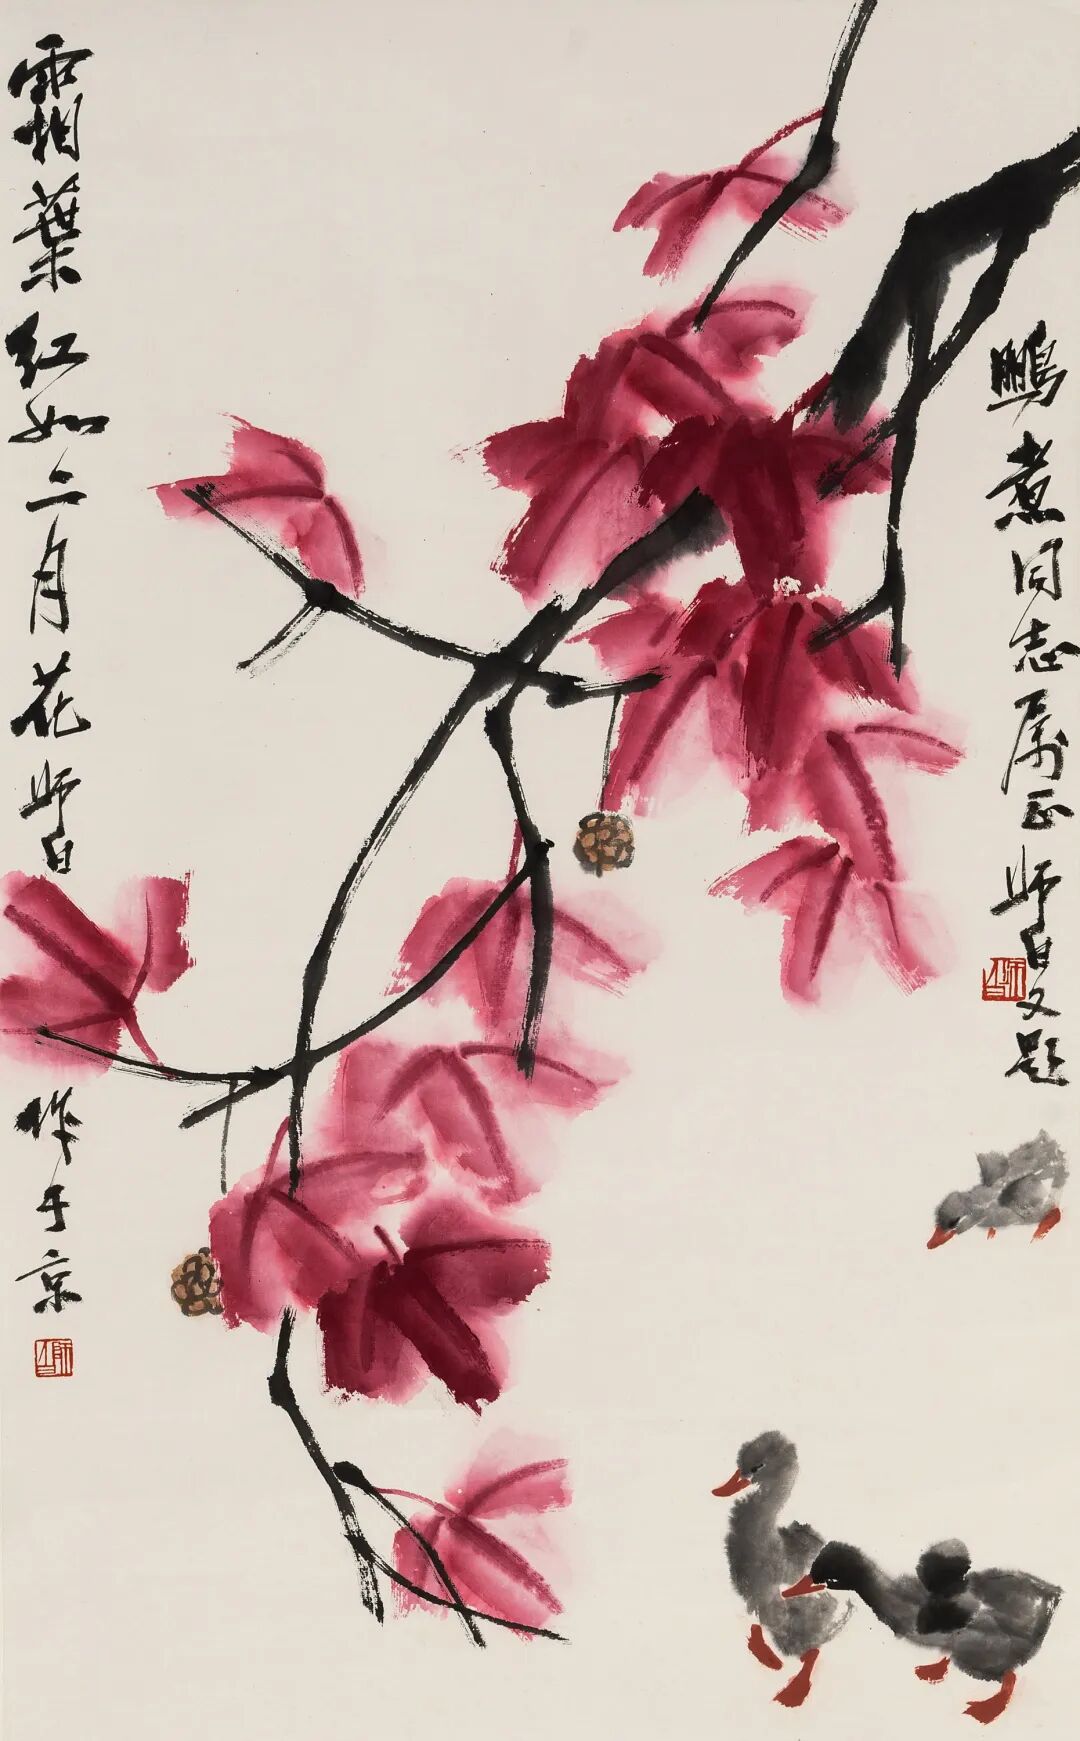 鹏煮同志属正 师白又题
霜葉红如二月花 师白 作于京